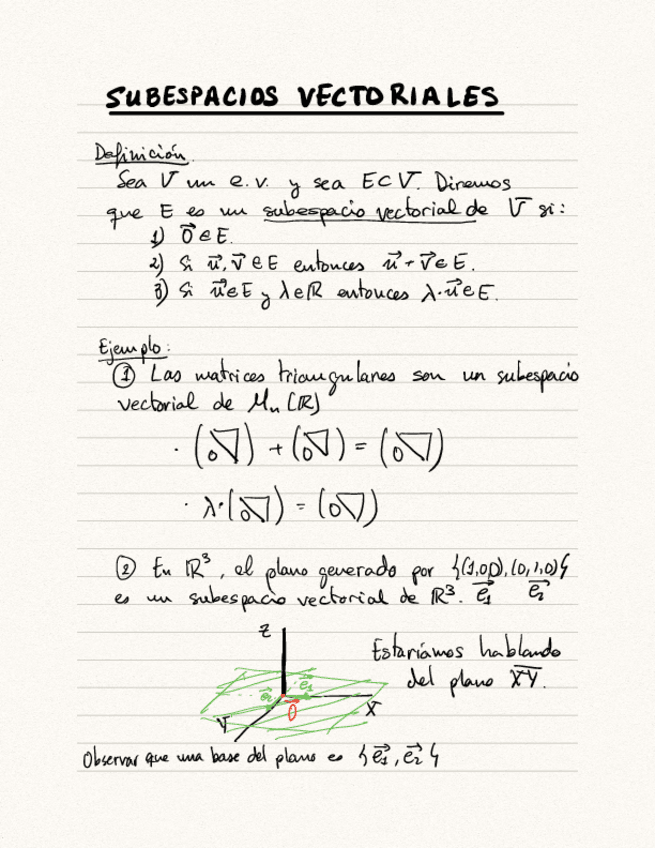 SUBESPACIOS VECTORIALES
Definición.
Sea V un e.v. y sea E⊂V. Diremos
que E es un subespacio vectorial de V si:
1) 0⃗ ∈ E.
2) Si u⃗, v⃗ ∈ E entonces u⃗ + v⃗ ∈ E.
3) Si u⃗ ∈ E y λ∈ℝ entonces λ·u⃗ ∈ E.
Ejemplo:
① Las matrices triangulares son un subespacio
vectorial de Mn(ℝ)
· (0) + (0) = (0)
· λ·(0) = (0)
② En ℝ³, el plano generado por {(1,0,0),(0,1,0)}
es un subespacio vectorial de ℝ³. e₁⃗ e₂⃗
Z
Estaríamos hablando
del plano XY.
e₂⃗ e₁⃗
0⃗ X
Y
Observar que una base del plano es {e₁⃗, e₂⃗}